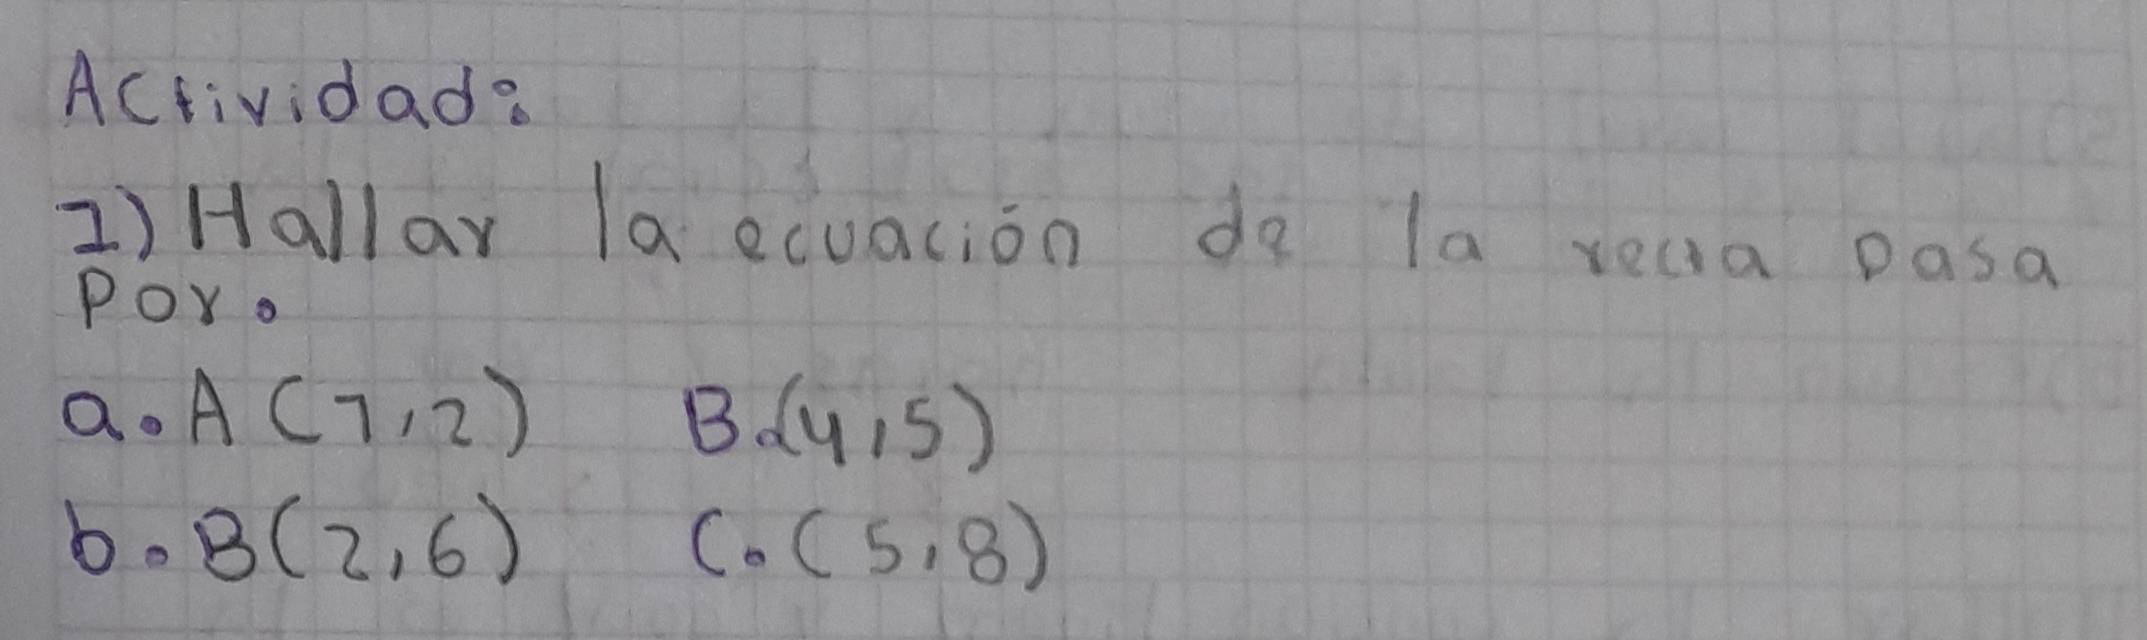 Actividad:
1) Hallar la ecuación de la recta pasa
por.
a. A (7,2) B.(4,5)
b. B(2,6) C. (5,8)